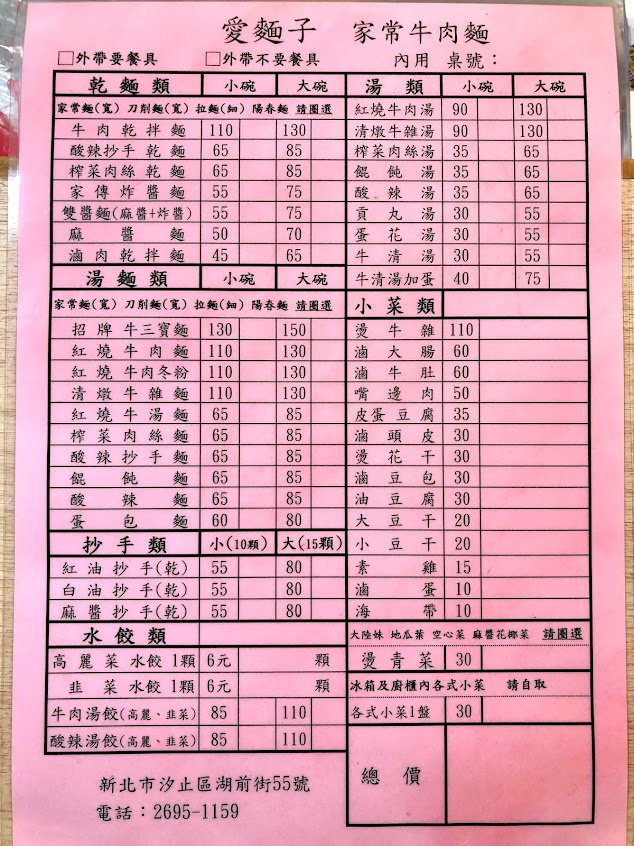 愛麵子 家常牛肉麵
□外帶要餐具 □外帶不要餐具 內用 桌號：
乾麵類 小碗 大碗
家常麵(寬) 刀削麵(寬) 拉麵(細) 陽春麵 請圈選
牛肉乾拌麵 110 130
酸辣抄手乾麵 65 85
榨菜肉絲乾麵 65 85
家傳炸醬麵 55 75
雙醬麵(麻醬+炸醬) 55 75
麻醬麵 50 70
滷肉乾拌麵 45 65
湯麵類 小碗 大碗
家常麵(寬) 刀削麵(寬) 拉麵(細) 陽春麵 請圈選
招牌牛三寶麵 130 150
紅燒牛肉麵 110 130
紅燒牛肉冬粉 110 130
清燉牛雜麵 110 130
紅燒牛湯麵 65 85
榨菜肉絲麵 65 85
酸辣抄手麵 65 85
餛飩麵 65 85
酸辣麵 65 85
蛋包麵 60 80
抄手類 小(10顆) 大(15顆)
紅油抄手(乾) 55 80
白油抄手(乾) 55 80
麻醬抄手(乾) 55 80
水餃類
高麗菜水餃1顆 6元 顆
韭菜水餃1顆 6元 顆
牛肉湯餃(高麗、韭菜) 85 110
酸辣湯餃(高麗、韭菜) 85 110
新北市汐止區湖前街55號
電話：2695-1159
湯類 小碗 大碗
紅燒牛肉湯 90 130
清燉牛雜湯 90 130
榨菜肉絲湯 35 65
餛飩湯 35 65
酸辣湯 35 65
貢丸湯 30 55
蛋花湯 30 55
牛清湯 30 55
牛清湯加蛋 40 75
小菜類
燙牛雜 110
滷大腸 60
滷牛肚 60
嘴邊肉 50
皮蛋豆腐 35
滷頭皮 30
燙花干 30
滷豆包 30
油豆腐 30
大豆干 20
小豆干 20
素雞 15
滷蛋 10
海帶 10
大陸妹 地瓜葉 空心菜 麻醬花椰菜 請圈選
燙青菜 30
冰箱及廚櫃內各式小菜 請自取
各式小菜1盤 30
總價